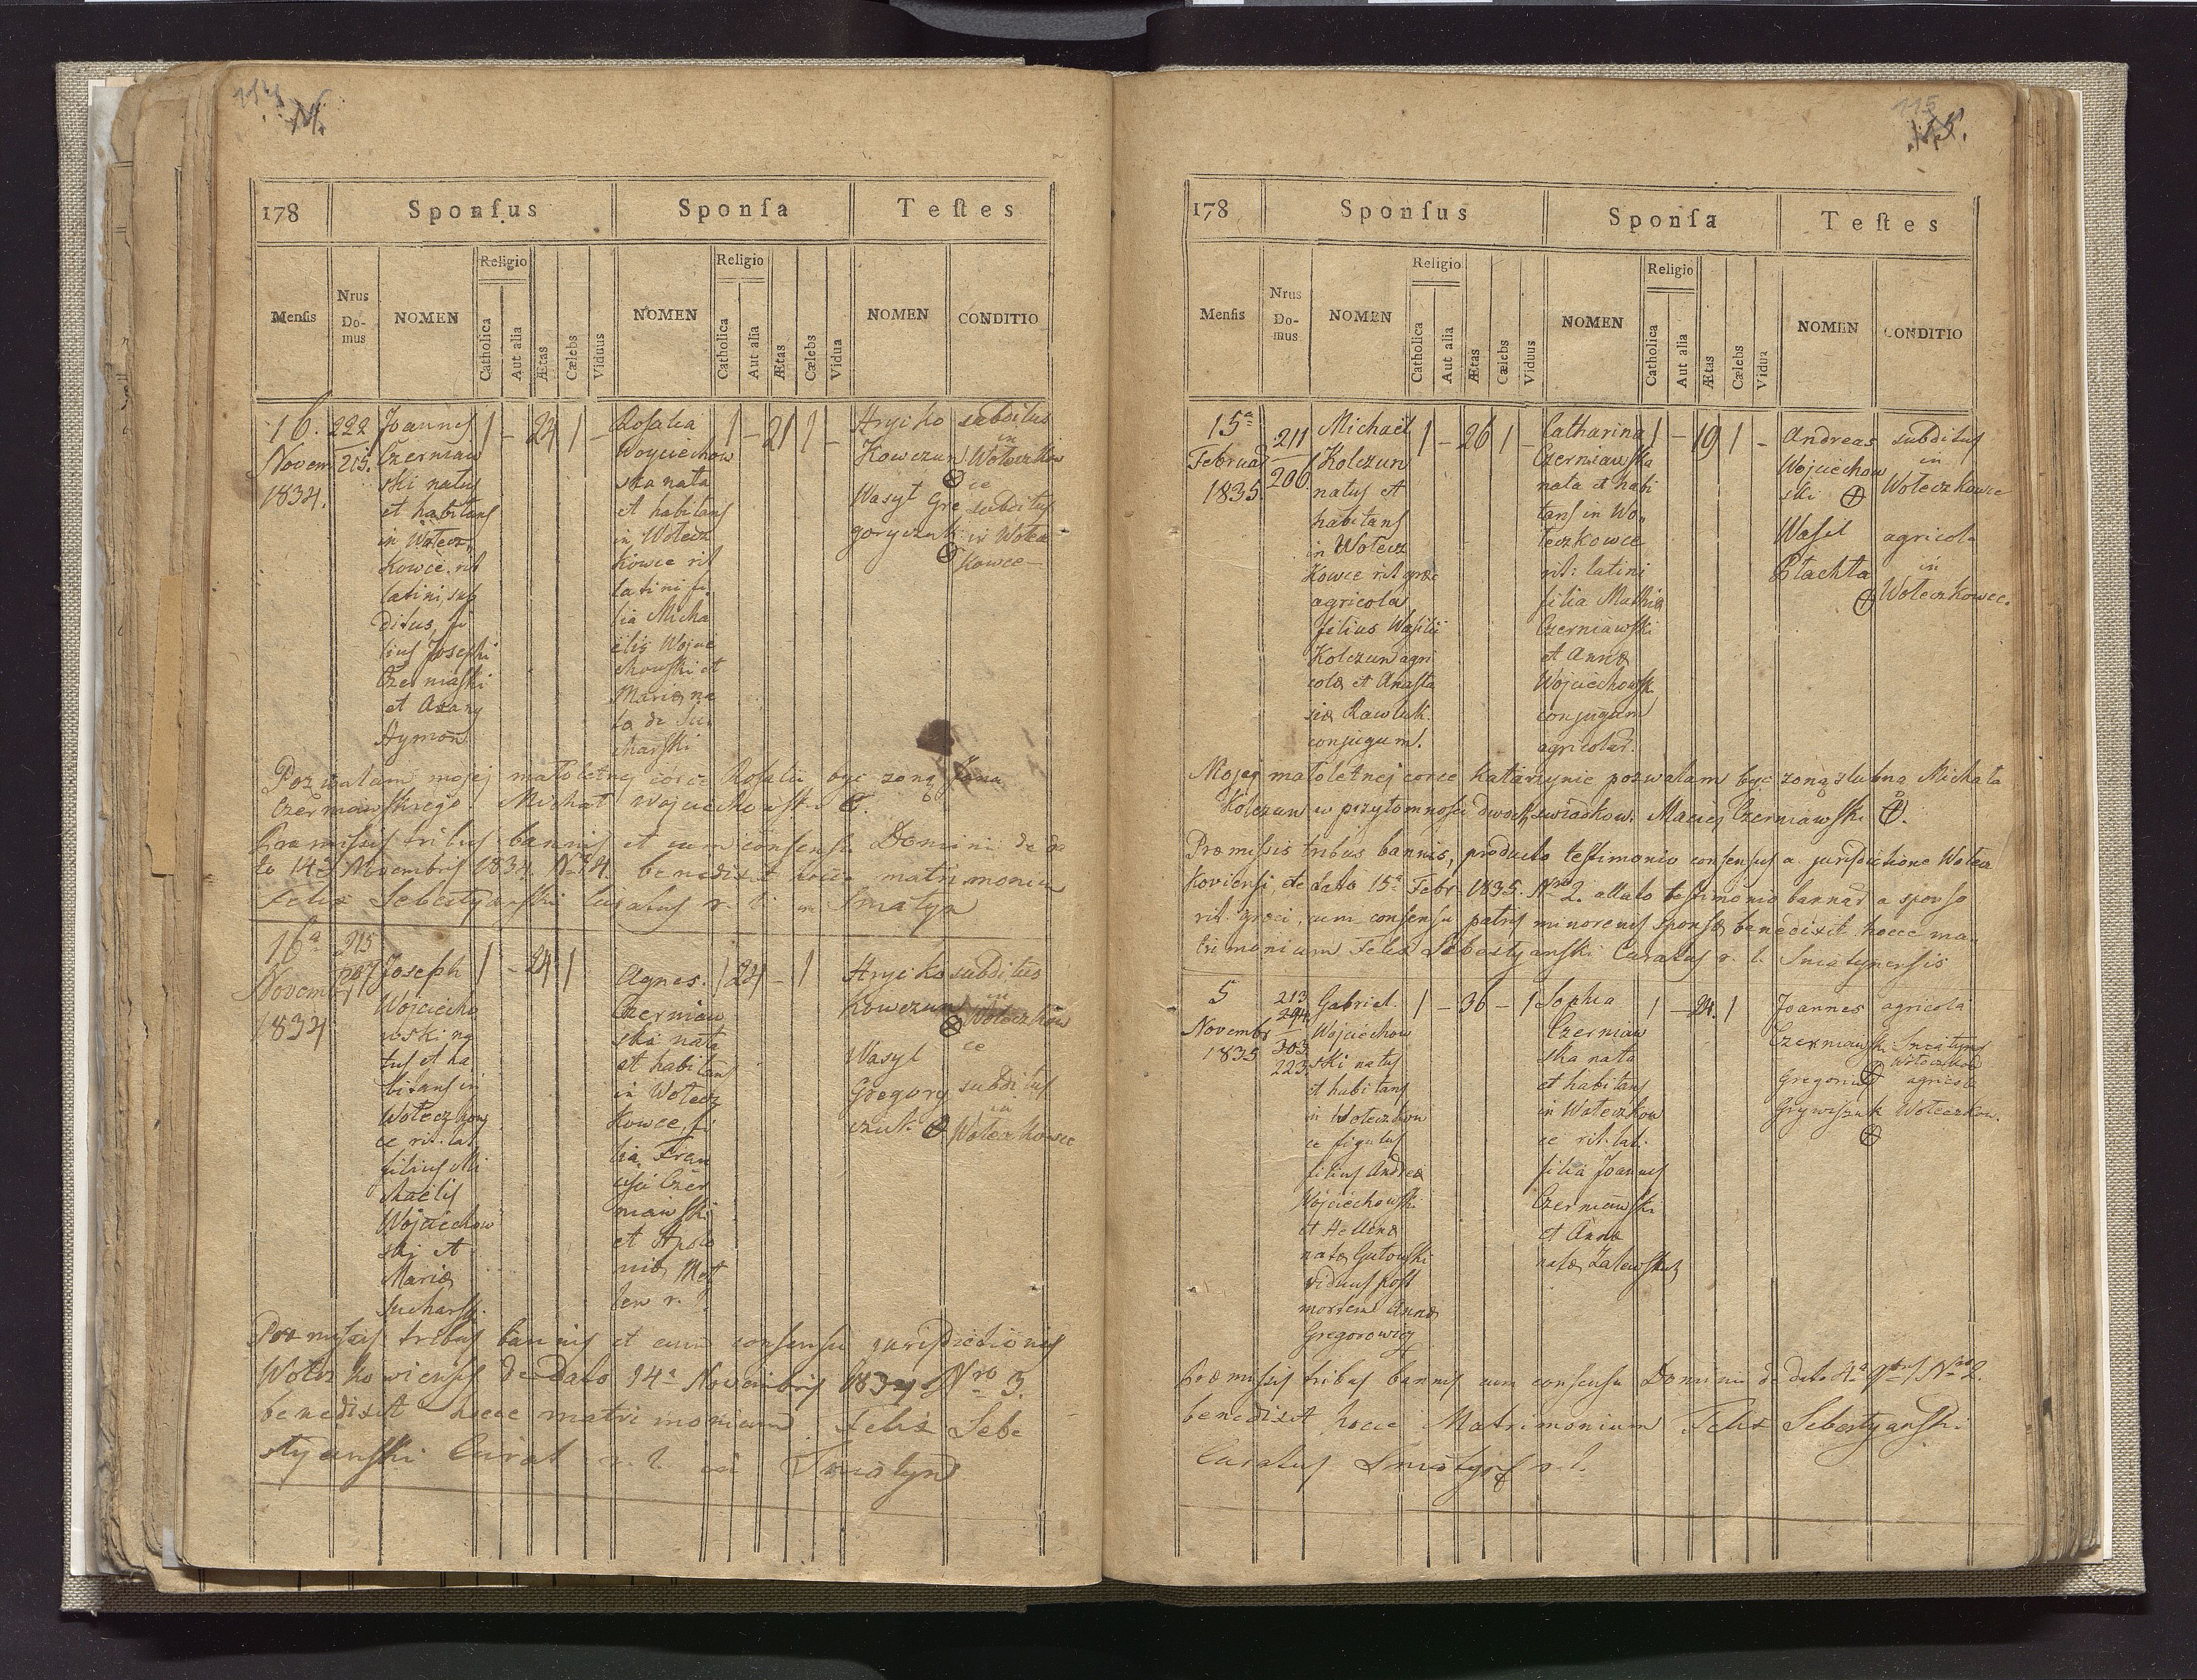 114
178 Sponſus Sponſa Teſtes
Religio Religio
Menſis Nrus Do- mus NOMEN Catholica Aut alia Ætas Cælebs Viduus NOMEN Catholica Aut alia Ætas Cælebs Vidua NOMEN CONDITIO
16. Novem 1834.
222
215.
Joannes
Czerniaw
ski natus
et habitans
in Wołecz
kowce rit
latini, sub
ditus, fi
lius Josephi
Czerniaski
et
Hymon
1 - 24 1 -
Rosalia
Woyciechow
ska nata
et habitans
in Wołecz
kowce rit
latini fi
lia Micha
elis Wojcie
chowski et
Mariæ na
ta de Su
charski
1 - 21 1 -
Hryćko subditus
Kowczun in Wołeczkow
ce
Wasyl Gre subditus
goryczuk in Wołecz
kowce
Pozwalam mojej małoletnej córce Rosalii być żoną Jana
Czerniawskiego Michał Wojciechowski
Præmissis tribus bannis et cum consensu Domini de da
to 14 Novembris 1834. N 4. benedixit hocce matrimonium
Felix Sebestyanski Curatus r. l. in Sniatyn
16a Novemb 1834
215
207
Joseph
Wojciecho
wski na
tus et ha
bitans in
Wołeczkow
ce rit. lat.
filius Mi
chaelis
Wojciechow
ski et
Mariæ
Sucharski
1 - 24 1
Agnes
Czerniaw
ska nata
et habitans
in Wołecz
kowce, fi
lia Fran
cisci Czer
niawski
et Apolo
niæ
1 24 - 1
Hryćko subditus
Kowczun in Wołeczkow
ce
Wasyl
Gregory subditus
czuk in Wołeczkowce
Præmissis tribus bannis et cum consensu jurisdictionis
Wołeczkowiensis de dato 14a Novembris 1834 Nro 3.
benedixit hocce matrimonium Felix Sebe
styanski Curat r. l. in Sniatyn
115
115.
178 Sponſus Sponſa Teſtes
Religio Religio
Menſis Nrus Do- mus NOMEN Catholica Aut alia Ætas Cælebs Viduus NOMEN Catholica Aut alia Ætas Cælebs Vidua NOMEN CONDITIO
15a Februar 1835.
211
206
Michaël
Kolczun
natus et
habitans
in Wołecz
kowce rit græc
agricola
filius Wasilii
Kolczun agri
colæ et Anasta
siæ Rawluk
conjugum.
1 - 26 1 -
Catharina
Czerniawska
nata et habi
tans in Wo„
łeczkowce
rit: latini
filia Mathiæ
Czerniawski
et Annæ
Wojciechowsk
conjugum
agricolar.
1 - 19 1 -
Andreas subditus
Wojciechow in
ski Wołeczkowce
Wasil agricola
Płachta in
Wołeczkowce.
Mojej małoletnej corce Katarzynie pozwalam być zoną slubną Michała
Kolczun w przytomności dwoch swiadkow. Maciej Czerniawski
Præmissis tribus bannis, producto testimonio consensus a jurisdictione Wołecz
kowiensi de dato 15a Febr. 1835. Nro 2. allato testimonio bannor a sponso
rit. græci, cum consensu patris minorenis sponsæ benedixit hocce ma„
trimonium Felix Sebestyanski Curatus r. l. Sniatynensis
5 Novembr 1835
213
294
303
223.
Gabriel
Wojciechow
ski natus
et habitans
in Wołeczkow
ce figulus
filius Andreæ
Wojciechowski
et Hellenæ
natæ Gutowski
viduus post
mortem Annæ
Gregorowicz
1 - 36 - 1
Sophia
Czerniaw
ska nata
et habitans
in Wołeczkow
ce rit. lat.
filia Joannes
Czerniawski
et Annæ
natæ Zalewskich
1 - 24. 1
Joannes agricola
Czerniawski Sniatyn
Wołeczkow
Gregorius agricola
Grywiszuk Wołeczkow.
Præmissis tribus bannis cum consensu Dominii de dato 4a 9bris Nro 2.
benedixit hocce Matrimonium Felix Sebestyanski
Curatus Sniatyn r. l.